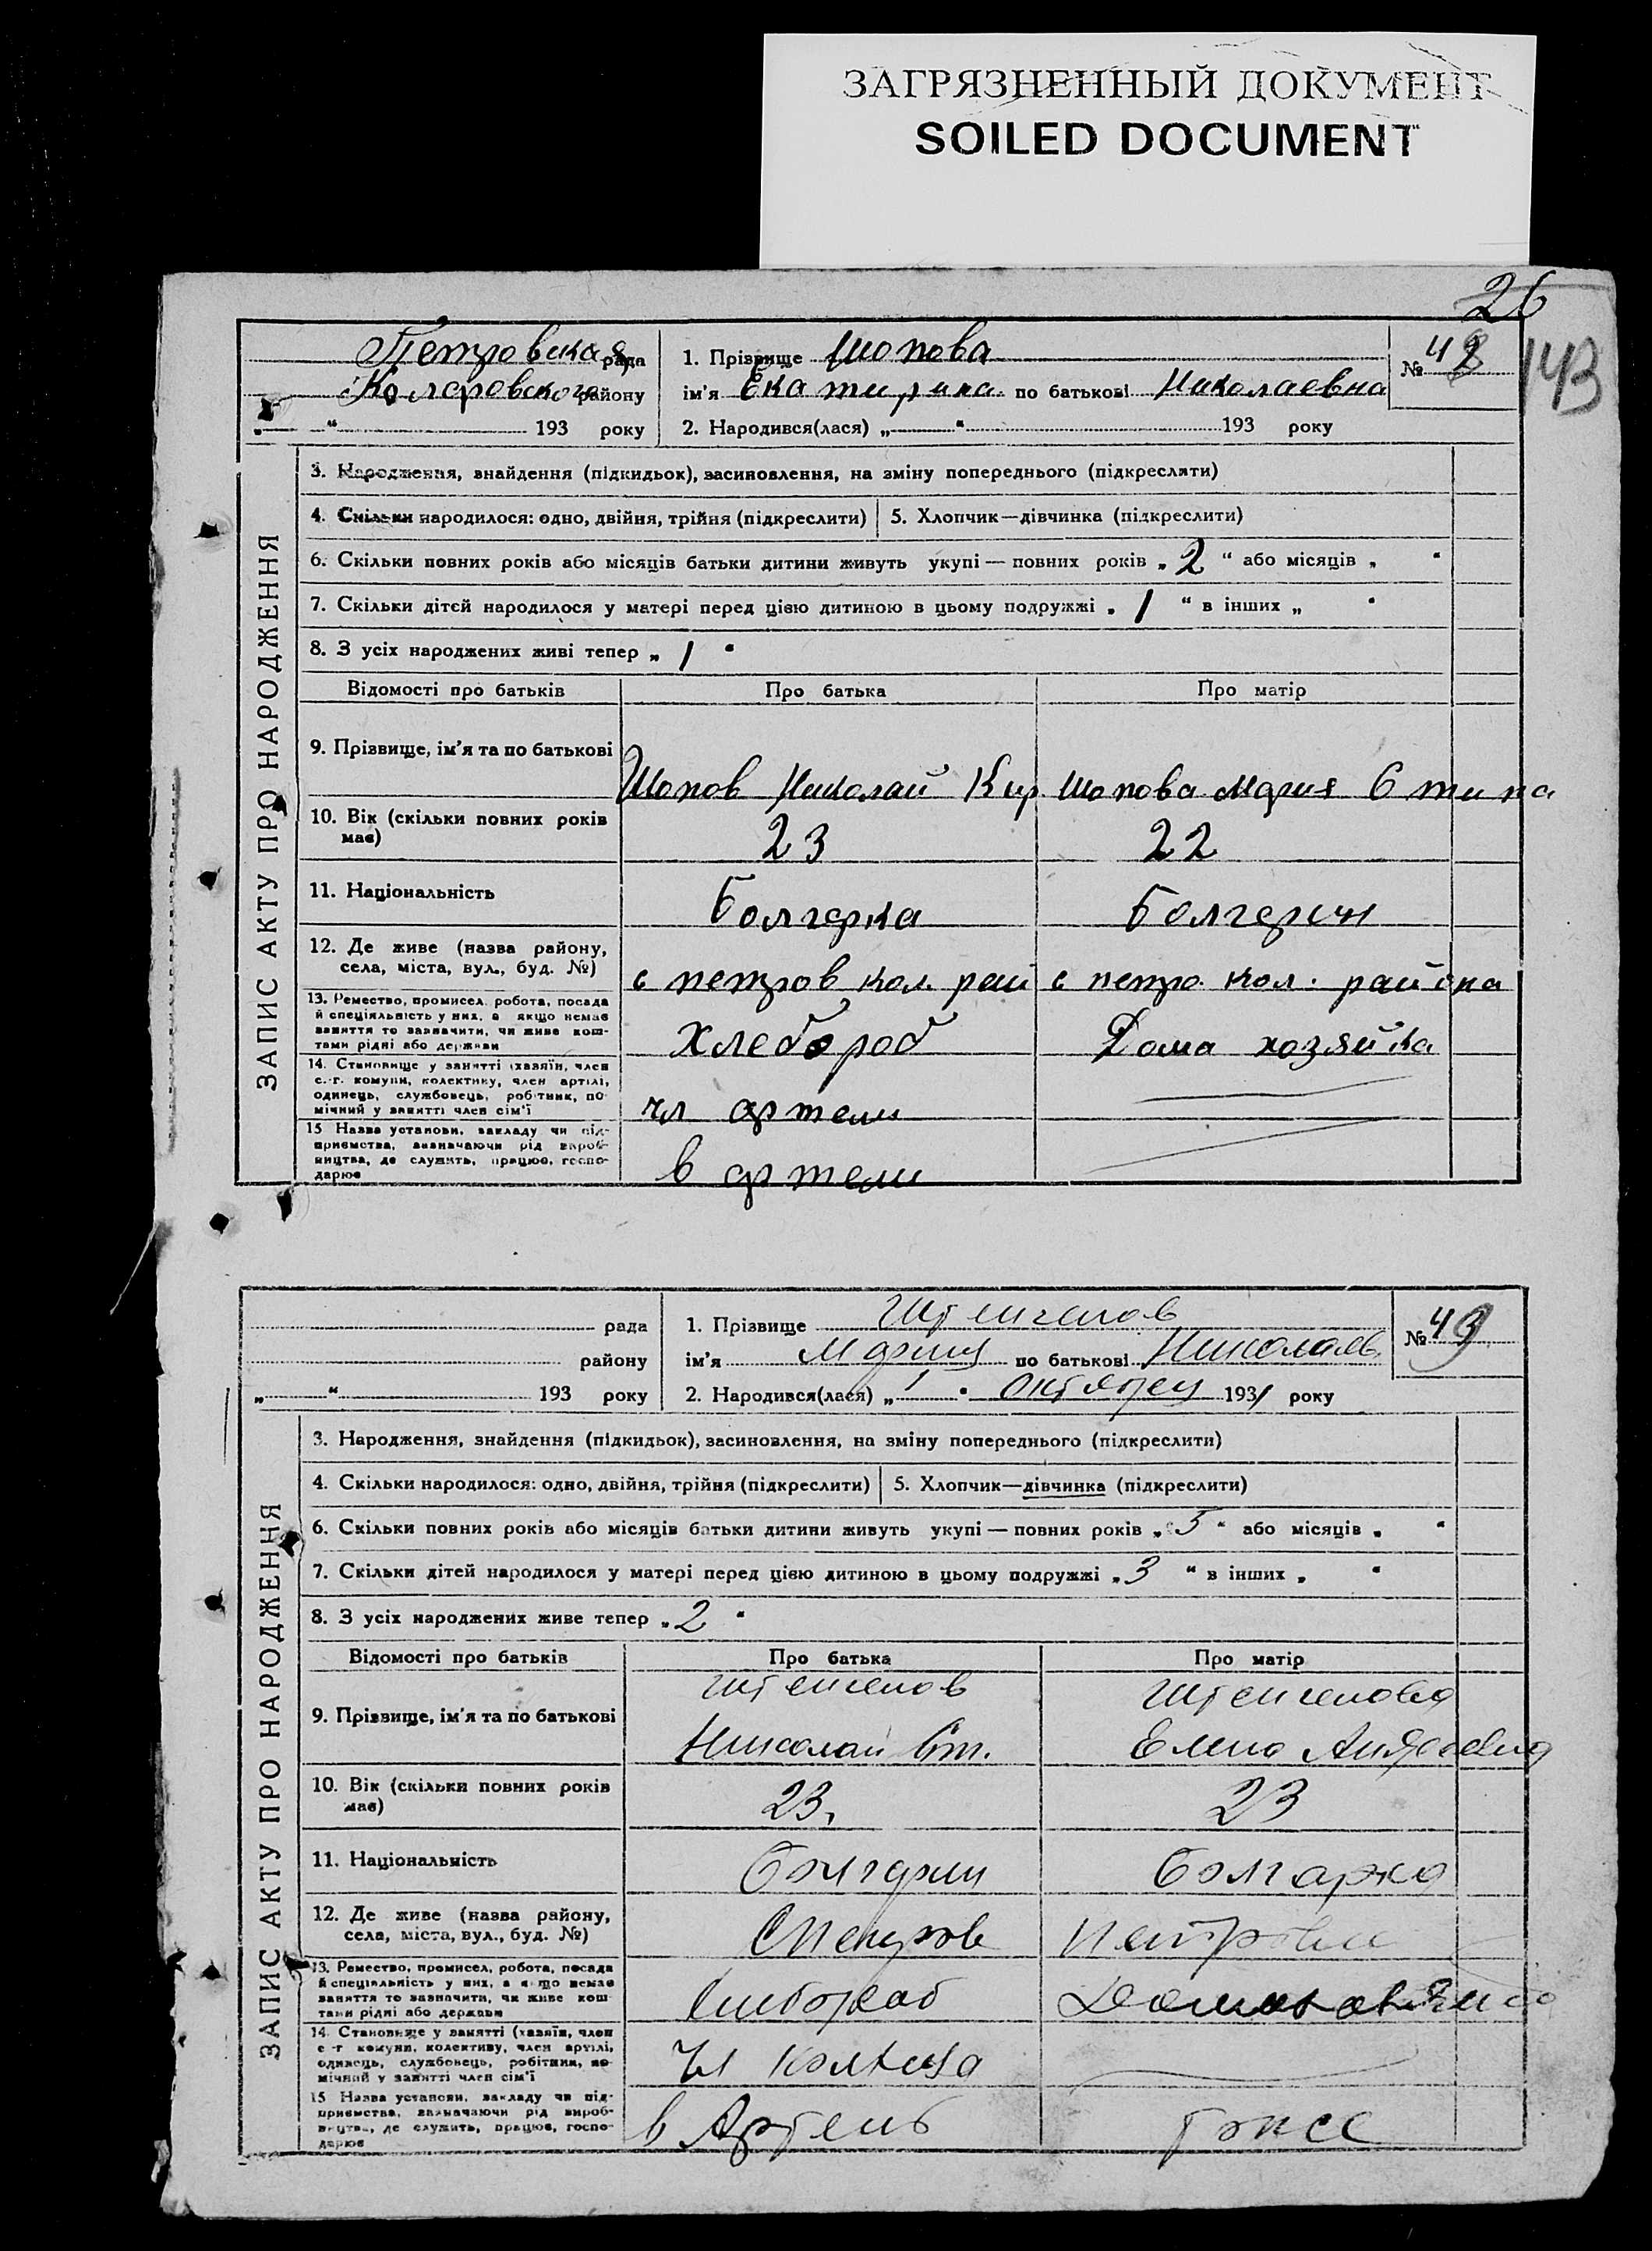 ЗАГРЯЗНЕННЫЙ ДОКУМЕНТ
SOILED DOCUMENT
26
143
Петровская рада
Коларовского району
„ “ 193 року
1. Прізвище Шопова
ім'я Екатирина по батькові Николаевна
2. Народився(лася) „ “ 193 року
№ 48
ЗАПИС АКТУ ПРО НАРОДЖЕННЯ
3. Народження, знайдення (підкидьок), засиновлення, на зміну попереднього (підкреслити)
4. Скільки народилося: одно, двійня, трійня (підкреслити) 5. Хлопчик—дівчинка (підкреслити)
6. Скільки повних років або місяців батьки дитини живуть укупі — повних років „ 2 “ або місяців „ “
7. Скільки дітей народилося у матері перед цією дитиною в цьому подружжі „ 1 “ в інших „ “
8. З усіх народжених живі тепер „ 1 “
Відомості про батьків Про батька Про матір
9. Прізвище, ім'я та по батькові Шопов Николай Кир Шопова Мария
10. Вік (скільки повних років має) 23 22
11. Національність Болгарка Болгарин
12. Де живе (назва району,
села, міста, вул., буд. №) с петров кол. рай с петро. кол. района
13. Ремество, промисел, робота, посада
й спеціяльність у них, а якщо немає
заняття то зазначити, чи живе кош-
тами рідні або держави Хлебороб Дома хозяйка
14. Становище у занятті (хазяїн, член
с.-г. комуни, колективу, член артілі,
одинець, службовець, робітник, по-
мічний у занятті член сім'ї чл артели
15 Назва установи, закладу чи під-
приємства, визначаючи рід вироб-
ництва, де служить, працює, госпо-
дарює в артели
рада
району
„ “ 193 року
1. Прізвище
ім'я Мария по батькові Николаев.
2. Народився(лася) „ 1 “ октября 1931 року
№ 49
ЗАПИС АКТУ ПРО НАРОДЖЕННЯ
3. Народження, знайдення (підкидьок), засиновлення, на зміну попереднього (підкреслити)
4. Скільки народилося: одно, двійня, трійня (підкреслити) 5. Хлопчик—дівчинка (підкреслити)
6. Скільки повних років або місяців батьки дитини живуть укупі — повних років „ 5 “ або місяців „ “
7. Скільки дітей народилося у матері перед цією дитиною в цьому подружжі „ 3 “ в інших „ “
8. З усіх народжених живе тепер „ 2 “
Відомості про батьків Про батька Про матір
9. Прізвище, ім'я та по батькові
Николай Ст. Елена
10. Вік (скільки повних років має) 23. 23
11. Національність Болгарин Болгарка
12. Де живе (назва району,
села, міста, вул., буд. №)
13. Ремество, промисел, робота, посада
й спеціяльність у них, а якщо немає
заняття то зазначити, чи живе кош-
тами рідні або держави
14. Становище у занятті (хазяїн, член
с.-г. комуни, колективу, член артілі,
одинець, службовець, робітник, по-
мічний у занятті член сім'ї чл
15 Назва установи, закладу чи під-
приємства, визначаючи рід вироб-
ництва, де служить, працює, госпо-
дарює в Артель